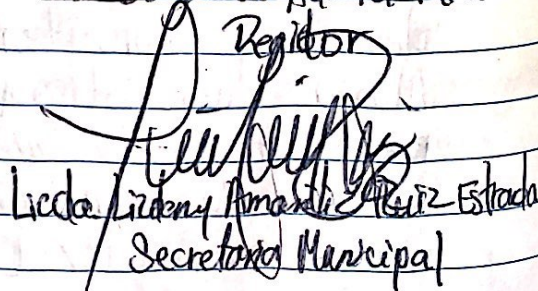 Regidor
Licda Lizdeny Amarilis Ruiz Estrada
Secretaria Municipal